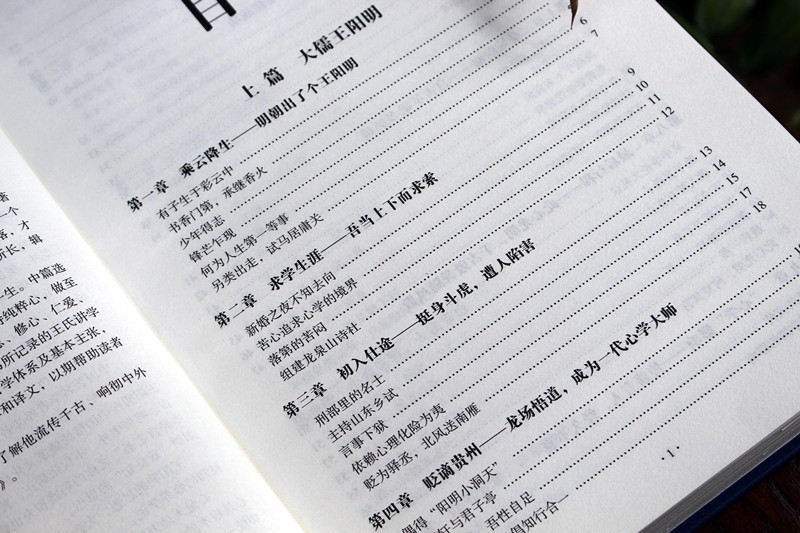 著
一个
落，才
所长，辑
一生。中篇选
守纯粹心，做至
、修心、仁爱、
所记录的王氏讲学
学体系及基本主张，
和译文，以期帮助读者
了解他流传千古、响彻中外
》。
目
上篇 大儒王阳明
第一章 乘云降生——明朝出了个王阳明
有子生于彩云中
书香门第，承继香火 6
少年得志 7
锋芒乍现
何为人生第一等事
另类出走，试马居庸关
第二章 求学生涯——吾当上下而求索
新婚之夜不知去向 9
苦心追求心学的境界 10
落第的苦闷 11
组建龙泉山诗社 12
第三章 初入仕途——挺身斗虎，遭人陷害
刑部里的名士 13
主持山东乡试 14
言事下狱 15
依赖心理化险为夷 17
贬为驿丞，北风送南雁 18
第四章 贬谪贵州——龙场悟道，成为一代心学大师
偶得“阳明小洞天”
轩与君子亭
吾性自足
倡知行合一
·1·